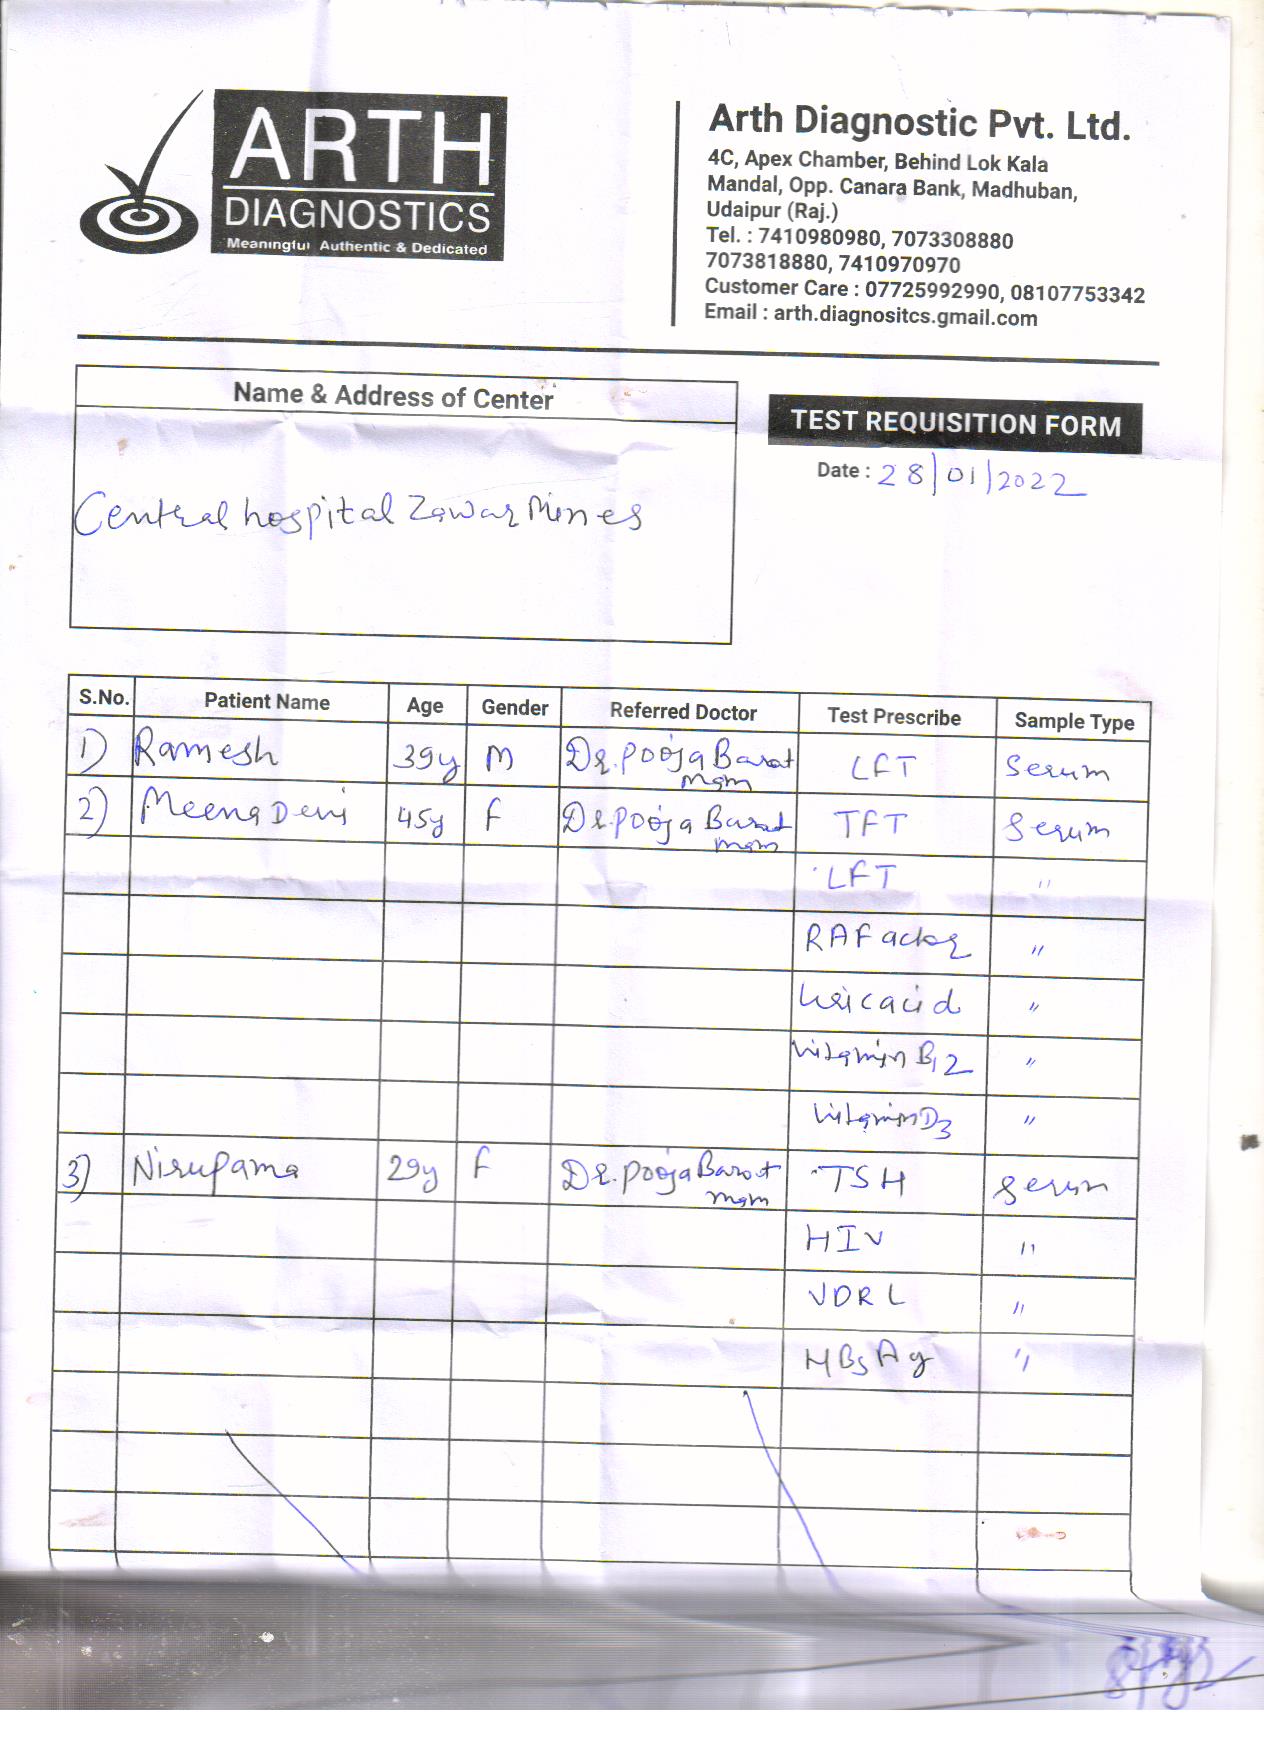 ARTH
DIAGNOSTICS
Meaningful Authentic & Dedicated
Arth Diagnostic Pvt. Ltd.
4C, Apex Chamber, Behind Lok Kala
Mandal, Opp. Canara Bank, Madhuban,
Udaipur (Raj.)
Tel. : 7410980980, 7073308880
7073818880, 7410970970
Customer Care : 07725992990, 08107753342
Email : arth.diagnositcs.gmail.com
Name & Address of Center
Central hospital Zawar Mines
TEST REQUISITION FORM
Date : 28/01/2022
S.No. Patient Name Age Gender Referred Doctor Test Prescribe Sample Type
1) Ramesh 39y M Dr. Pooja Barat mam LFT Serum
2) Meena Devi 45y F Dr. Pooja Barat mam TFT Serum
LFT "
RA Factor "
Uric acid "
Vitamin B12 "
Vitamin D3 "
3) Nirupama 29y F Dr. Pooja Barat mam TSH Serum
HIV "
VDRL "
HBsAg "